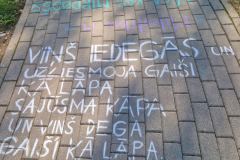 VIŅŠ IEDEGĀS UN
UZLIESMOJA GAIŠI
KĀ LĀPA
SAJŪSMA KĀPA
UN VIŅŠ DEGA
GAIŠI KĀ LĀPA